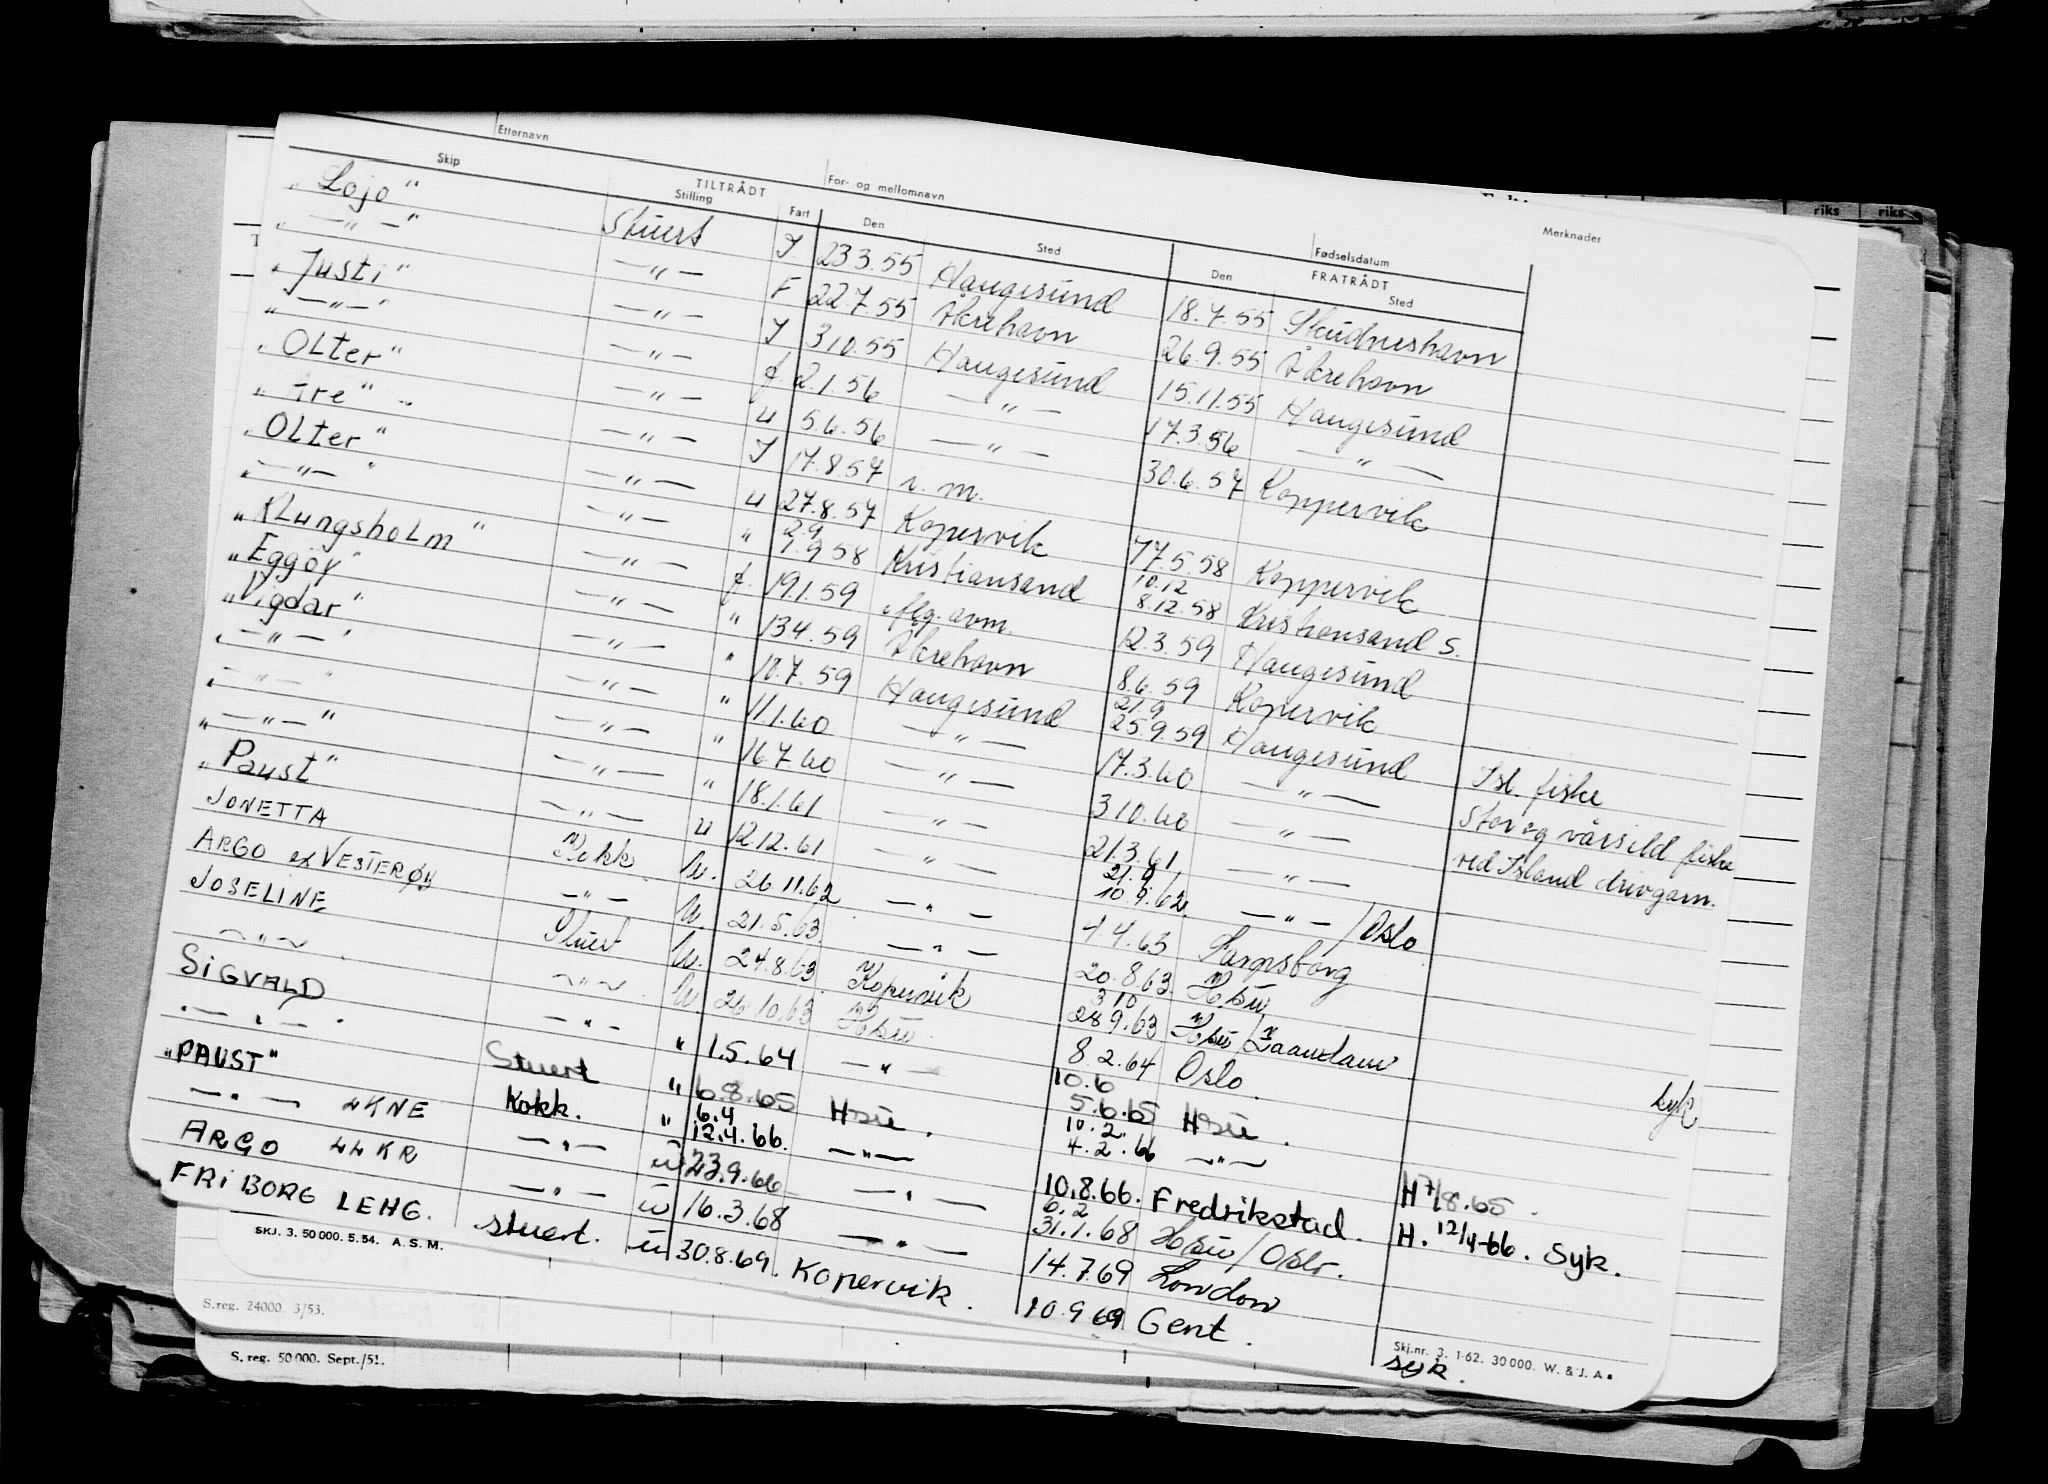 Etternavn For- og mellomnavn Fødselsdatum Merknader riks riks
Skip TILTRÅDT Stilling Fart Den Sted FRATRÅDT Den Sted
„Lojo" Stuert I 23.3.55 Haugesund 18.7.55 Skudneshavn
„—„—" —„— F 22.7.55 Åkrehavn 26.9.55 Åkrehavn
„Justi" —„— I 3.10.55 Haugesund 15.11.55 Haugesund
„—„—" —„— f 2.1.56 —„— 17.3.56 —„—
„Olter" —„— u 5.6.56 —„— 30.6.57 Koppervik
„Tre" —„— I 17.8.57 n. m.
„Olter" —„— u 27.8.57 Kopervik 17.5.58 Koppervik
„—„—" —„— " 2.9 1.9 58 Kristiansand 10.12 8.12.58 Kristiansand S.
„Klungsholm" —„— f. 19.1.59 12.3.59 Haugesund
„Eggöy" —„— " 13.4.59 Åkrehavn 8.6.59 Kopervik
„Vigdar" —„— " 10.7.59 Haugesund 21.9 25.9.59 Haugesund
„—„—" —„— " 11.1.60 —„— 17.3.60 —„— Isl. fiske
„—„—" —„— " 16.7.60 —„— 3.10.60 —„— Stor og vårsild fiske
„—„—" —„— " 18.1.61 —„— 21.3.61 —„— ved Island drivgarn.
„Paust" —„— u 12.12.61 „— 21.9 10.9.62 —„—/Oslo
JONETTA Kokk u. 26.11.62 —„— 4.4.63 Sarpsborg
ARGO ex VESTERØY —„— u. 21.5.63 —„— 20.8.63 Hsu
JOSELINE Stuert u. 24.8.63 Kopervik 3 10 28 9.63 Hsu/Zaandam
—„— —„— u. 26.10.63 Hsu. 8 2.64 Oslo.
SIGVALD —„— " 1.5.64 —„— 10.6 5.6.65 Hsu. syk
„—„—" Stuert " 6.8.65 Hsu. 10.2. 4.2.66 —„— H 7/8.65.
„PAUST" Kokk. " 6.4 12.4.66. —„— 10.8.66. Fredrikstad. H. 12/4-66. Syk.
—„— LKNE —„— u 23.9.66 —„— 6.2 31.1.68 Hsu/Oslo.
ARGO LLKR —„— u 16.3.68 —„— 14.7.69 London
FRIBORG LEHG. stuert. u 30.8.69. Kopervik. 10.9 69 Gent. syk.
SKJ. 3. 50 000. 5.54. A.S.M.
Skj.nr. 3. 1-62. 30 000. W. & J. A.
S.reg. 24000. 3/53.
S. reg. 50 000. Sept./51.